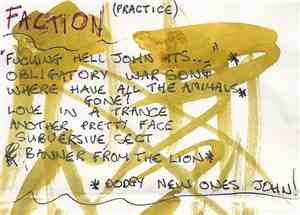 FACTION (PRACTICE)
"FUCKING HELL JOHN ITS..." *
OBLIGATORY WAR SONG
WHERE HAVE ALL THE ANIMALS *
GONE?
LOVE IN A TRANCE
ANOTHER PRETTY FACE
SUBVERSIVE SECT
* BANNER FROM THE LION *
* DODGY NEW ONES JOHN!